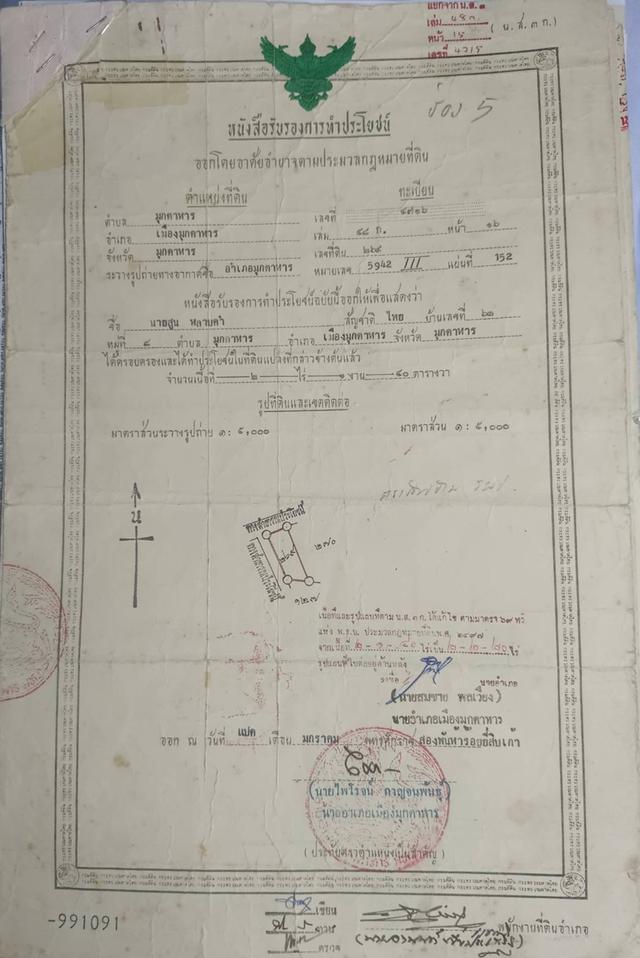 แยกจาก น.ส.๓
เล่ม ๔๘ก. ( น.ส.๓ ก.)
หน้า ๑๕
เลขที่ ๔๗๑๕
ช่อง 5
หนังสือรับรองการทำประโยชน์
ออกโดยอาศัยอำนาจตามประมวลกฎหมายที่ดิน
ตำแหน่งที่ดิน ทะเบียน
ตำบล มุกดาหาร เลขที่ ๔๗๑๖
อำเภอ เมืองมุกดาหาร เล่ม ๔๘ ก. หน้า ๑๖
จังหวัด มุกดาหาร เลขที่ดิน ๒๖๙
ระวางรูปถ่ายทางอากาศชื่อ อำเภอมุกดาหาร หมายเลข 5942 III แผ่นที่ 152
หนังสือรับรองการทำประโยชน์ฉบับนี้ออกให้เพื่อแสดงว่า
ชื่อ นายสูน หลาบคำ สัญชาติ ไทย บ้านเลขที่ ๖๑
หมู่ที่ ๘ ตำบล มุกดาหาร อำเภอ เมืองมุกดาหาร จังหวัด มุกดาหาร
ได้ครอบครองและได้ทำประโยชน์ในที่ดินแปลงที่กล่าวข้างต้นแล้ว
จำนวนเนื้อที่ ๒ ไร่ ๑ งาน ๔๐ ตารางวา
รูปที่ดินและเขตติดต่อ
มาตราส่วนระวางรูปถ่าย ๑ : ๕,๐๐๐ มาตราส่วน ๑ : ๕,๐๐๐
น
ทางสาธารณประโยชน์
ทางสาธารณประโยชน์
๒๖๙
๒๗๐
๑๒๗
เนื้อที่และรูปแผนที่ตาม น.ส.๓ก. ได้แก้ไข ตามมาตรา ๖๙ ทวิ
แห่ง พ.ร.บ. ประมวลกฎหมายที่ดิน พ.ศ. ๒๔๙๗
จากเนื้อที่ ๒-๑-๔๐ ไร่เป็น ๒-๒-๒๐ ไร่
รูปแผนที่ใบต่ออยู่ด้านหลัง
ลงชื่อ นายอำเภอ
(นายสมชาย พลเวียง)
นายอำเภอเมืองมุกดาหาร
ออก ณ วันที่ แปด เดือน มกราคม พุทธศักราช สองพันห้าร้อยยี่สิบเก้า
(นายไพโรจน์ กาญจนพันธุ์)
นายอำเภอเมืองมุกดาหาร
(ประทับตราตำแหน่งเป็นสำคัญ)
-991091
เขียน
ทาน
ตรวจ
พนักงานที่ดินอำเภอ